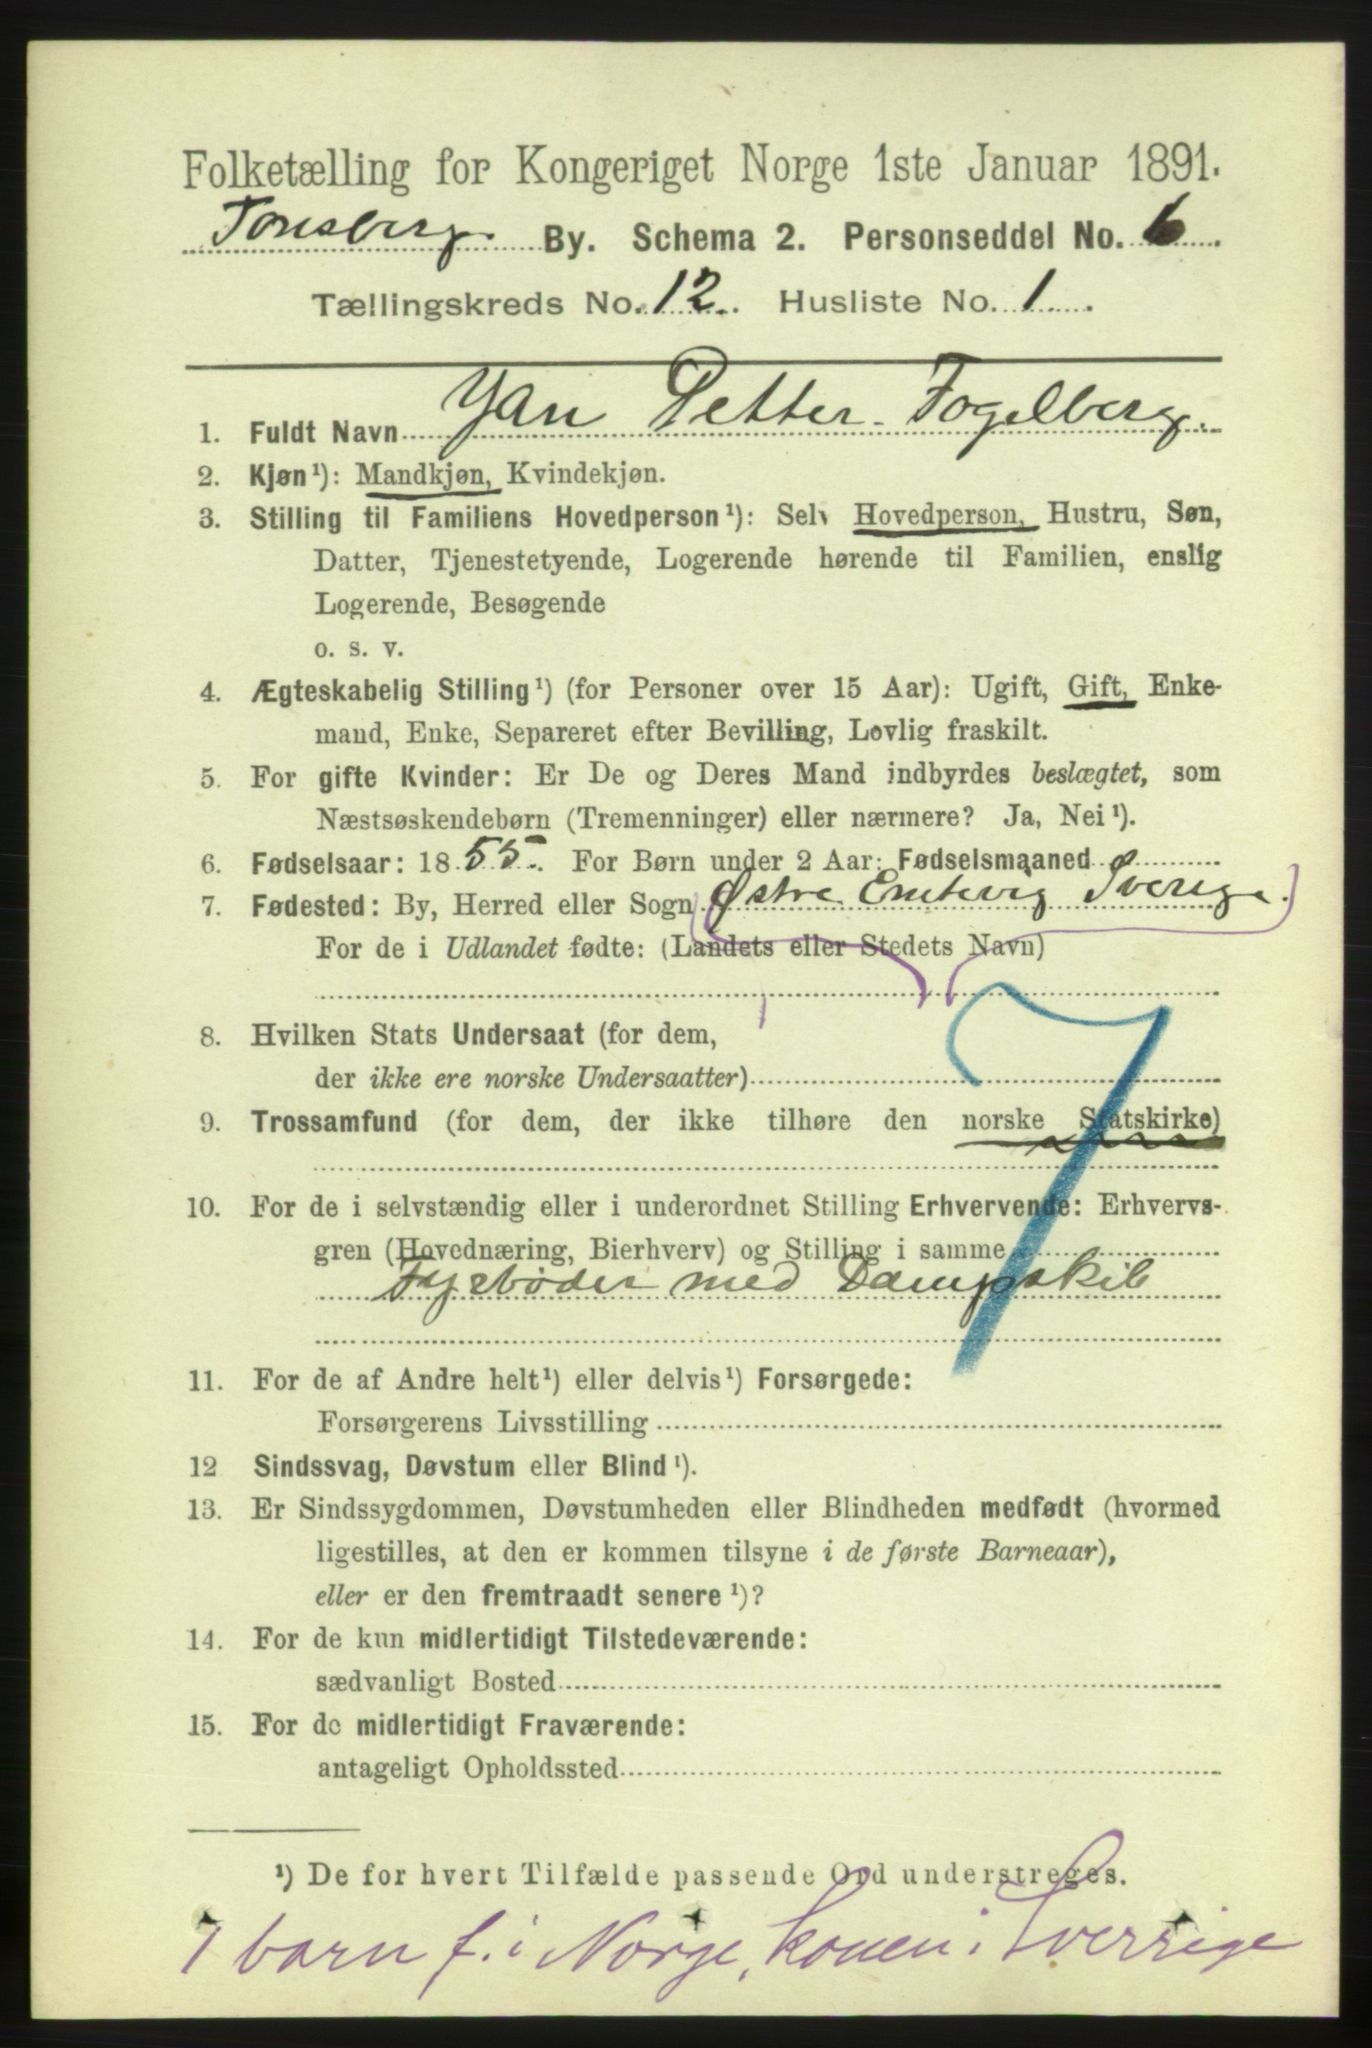 Folketælling for Kongeriget Norge 1ste Januar 1891.
Tønsberg By. Schema 2. Personseddel No. 6
Tællingskreds No. 12. Husliste No. 1
1. Fuldt Navn Yan Petter Fogelberg.
2. Kjøn¹): Mandkjøn, Kvindekjøn.
3. Stilling til Familiens Hovedperson¹): Selv Hovedperson, Hustru, Søn,
Datter, Tjenestetyende, Logerende hørende til Familien, enslig
Logerende, Besøgende
o. s. v.
4. Ægteskabelig Stilling¹) (for Personer over 15 Aar): Ugift, Gift, Enke-
mand, Enke, Separeret efter Bevilling, Lovlig fraskilt.
5. For gifte Kvinder: Er De og Deres Mand indbyrdes beslægtet, som
Næstsøskendebørn (Tremenninger) eller nærmere? Ja, Nei¹).
6. Fødselsaar: 1855. For Børn under 2 Aar: Fødselsmaaned
7. Fødested: By, Herred eller Sogn Østre Sverige.
For de i Udlandet fødte: (Landets eller Stedets Navn)
8. Hvilken Stats Undersaat (for dem,
der ikke ere norske Undersaatter)
9. Trossamfund (for dem, der ikke tilhøre den norske Statskirke)
10. For de i selvstændig eller i underordnet Stilling Erhvervende: Erhvervs-
gren (Hovednæring, Bierhverv) og Stilling i samme
Fyrbøder med Dampskib
7
11. For de af Andre helt¹) eller delvis¹) Forsørgede:
Forsørgerens Livsstilling
12 Sindssvag, Døvstum eller Blind¹).
13. Er Sindssygdommen, Døvstumheden eller Blindheden medfødt (hvormed
ligestilles, at den er kommen tilsyne i de første Barneaar),
eller er den fremtraadt senere¹)?
14. For de kun midlertidigt Tilstedeværende:
sædvanligt Bosted
15. For de midlertidigt Fraværende:
antageligt Opholdssted
¹) De for hvert Tilfælde passende Ord understreges.
7 barn f. i Norge, konen i Sverrige